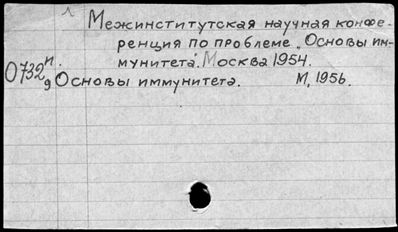 Межинститутская научная конфе-
ренция по проблеме „Основы им-
мунитета". Москва 1954.
О732 п.
9 Основы иммунитета. М., 1956.